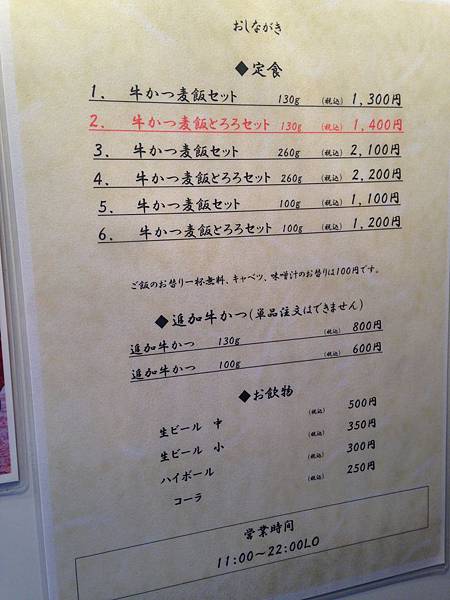 おしながき
◆定食
1. 牛かつ麦飯セット 130g (税込) 1,300円
2. 牛かつ麦飯とろろセット 130g (税込) 1,400円
3. 牛かつ麦飯セット 260g (税込) 2,100円
4. 牛かつ麦飯とろろセット 260g (税込) 2,200円
5. 牛かつ麦飯セット 100g (税込) 1,100円
6. 牛かつ麦飯とろろセット 100g (税込) 1,200円
ご飯のお替り一杯無料、キャベツ、味噌汁のお替りは100円です。
◆追加牛かつ(単品注文はできません)
追加牛かつ 130g (税込) 800円
追加牛かつ 100g (税込) 600円
◆お飲物
生ビール 中 (税込) 500円
生ビール 小 (税込) 350円
ハイボール (税込) 300円
コーラ (税込) 250円
営業時間
11:00～22:00LO